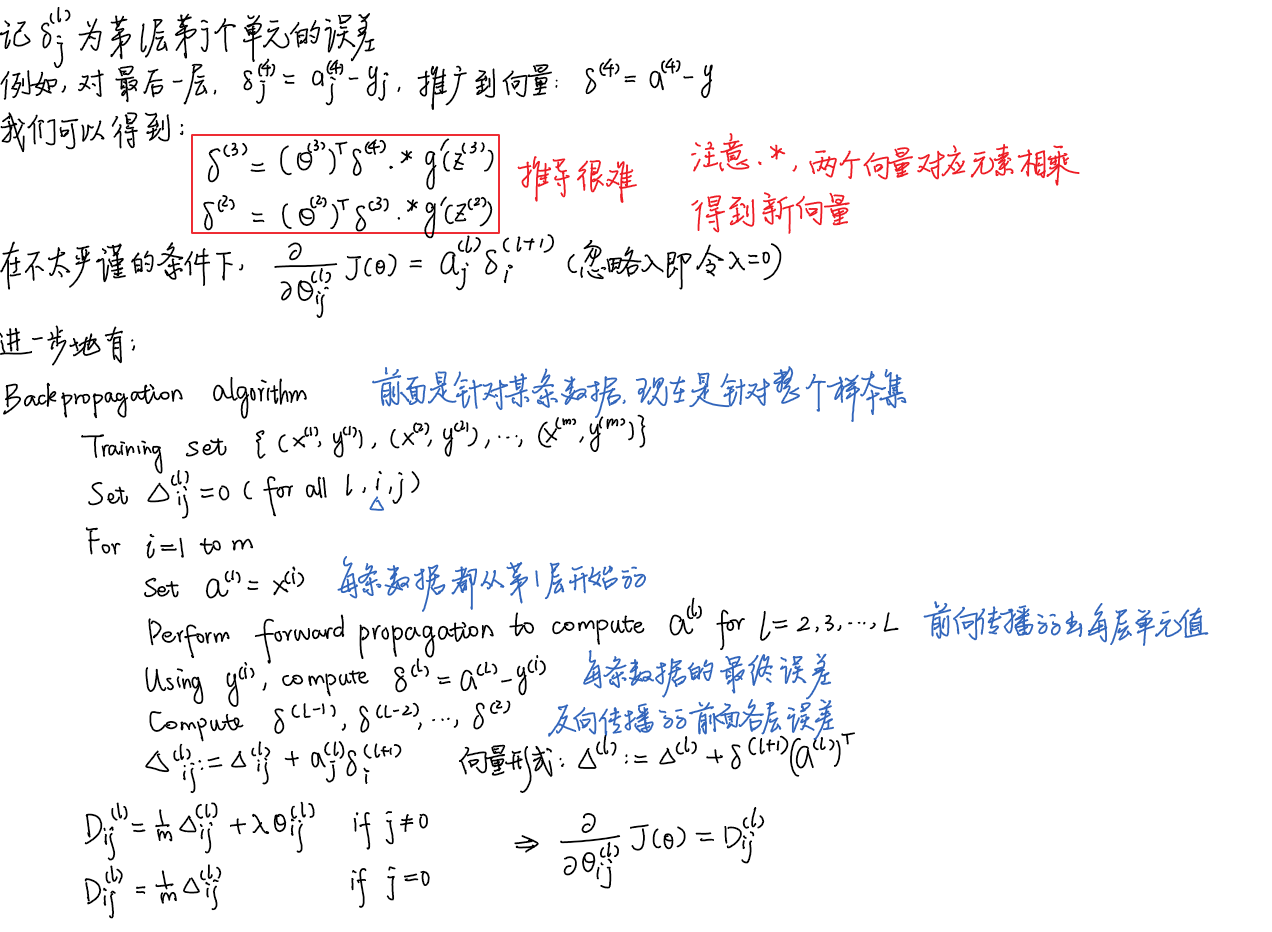 记 δj^(l) 为第l层第j个单元的误差
例如, 对最后一层, δj^(4) = aj^(4) - yj, 推广到向量: δ^(4) = a^(4) - y
我们可以得到:
δ^(3) = (θ^(3))^T δ^(4) .* g'(z^(3))
δ^(2) = (θ^(2))^T δ^(3) .* g'(z^(2))
推导很难
注意 .*, 两个向量对应元素相乘
得到新向量
在不太严谨的条件下, ∂/∂θij^(l) J(θ) = aj^(l) δi^(l+1) (忽略λ即令λ=0)
进一步地有:
Backpropagation algorithm 前面是针对某条数据, 现在是针对整个样本集
Training set {(x^(1), y^(1)), (x^(2), y^(2)), ..., (x^(m), y^(m))}
Set Δij^(l) = 0 (for all l, i, j)
Δ
For i=1 to m
Set a^(1) = x^(i) 每条数据都从第1层开始
Perform forward propagation to compute a^(l) for l = 2, 3, ..., L 前向传播 出每层单元值
Using y^(i), compute δ^(L) = a^(L) - y^(i) 每条数据的最终误差
Compute δ^(L-1), δ^(L-2), ..., δ^(2) 反向传播 前面各层误差
Δij^(l) := Δij^(l) + aj^(l) δi^(l+1) 向量形式: Δ^(l) := Δ^(l) + δ^(l+1) (a^(l))^T
Dij^(l) = 1/m Δij^(l) + λθij^(l) if j≠0
⇒ ∂/∂θij^(l) J(θ) = Dij^(l)
Dij^(l) = 1/m Δij^(l) if j=0